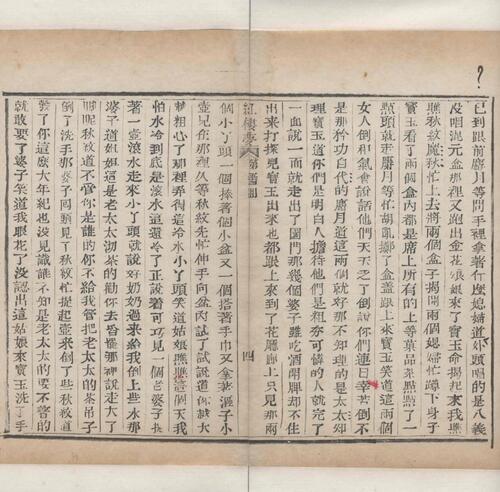 已到跟前麝月等問手裡拿著什麼媳婦道外頭唱的是八義
没唱混元盒那裡又跑出金花娘娘來了寶玉命揭起來我瞧
瞧秋紋麝月忙上去將兩個盒子揭開兩個媳婦忙蹲下身子
寶玉看了兩個盒內都是席上所有的上等菓品菜點點了一
點頭就走麝月等忙胡亂擲了盒盖跟上來寶玉笑道這兩個
女人倒和氣會說話他們天天乏了倒說你們連日辛苦倒不
是那矜功自伐的麝月道這兩個就好那不知理的是太不知
理寶玉道你們是明白人擔待他們是粗夯可憐的人就完了
一面說一面就走出了園門那幾個婆子雖吃酒鬬牌却不住
出來打探見寶玉出來也都跟上來到了花廳廊上只見那兩
紅樓夢 第五十四回 四
個小丫頭一個捧著個小盆又一個搭著手巾又拿著漚子小
壺兒在那裡久等秋紋先忙伸手向盆內試了試說道你越大
越粗心了那裡弄得這冷水小丫頭笑道姑娘瞧瞧這個天我
怕水冷到底是滾水這還冷了正說著可巧見一個老婆子提
著一壺滾水走來小丫頭就說好奶奶過來給我倒上些水那
婆子道姐姐這是老太太沏茶的勸你去舀罷那裡說走大了
脚呢秋紋道不管你是誰的你不給我管把老太太的茶吊子
倒了洗手那婆子囬頭見了秋紋忙提起壺來倒了些秋紋道
彀了你這麼大年紀也沒見識誰不知是老太太的要不著的
就敢要了婆子笑道我眼花了沒認出這姑娘來寶玉洗了手